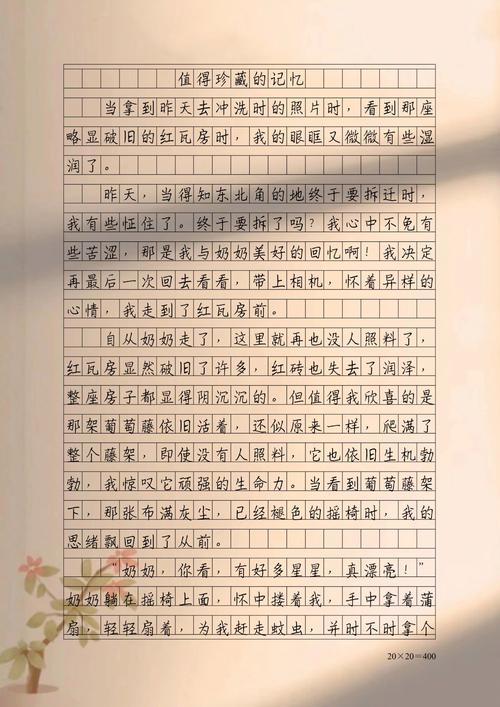 值得珍藏的记忆
当拿到昨天去冲洗时的照片时，看到那座
略显破旧的红瓦房时，我的眼眶又微微有些湿
润了。
昨天，当得知东北角的地终于要拆迁时，
我有些怔住了。终于要拆了吗？我心中不免有
些苦涩，那是我与奶奶美好的回忆啊！我决定
再最后一次回去看看，带上相机，怀着异样的
心情，我走到了红瓦房前。
自从奶奶走了，这里就再也没人照料了，
红瓦房显然破旧了许多，红砖也失去了润泽，
整座房子都显得阴沉沉的。但值得我欣喜的是
那架葡萄藤依旧活着，还似原来一样，爬满了
整个藤架，即使没有人照料，它也依旧生机勃
勃，我惊叹它顽强的生命力。当看到葡萄藤架
下，那张布满灰尘，已经褪色的摇椅时，我的
思绪飘回到了从前。
“奶奶，你看，有好多星星，真漂亮！”
奶奶躺在摇椅上面，怀中搂着我，手中拿着蒲
扇，轻轻扇着，为我赶走蚊虫，并时不时拿个
20×20=400